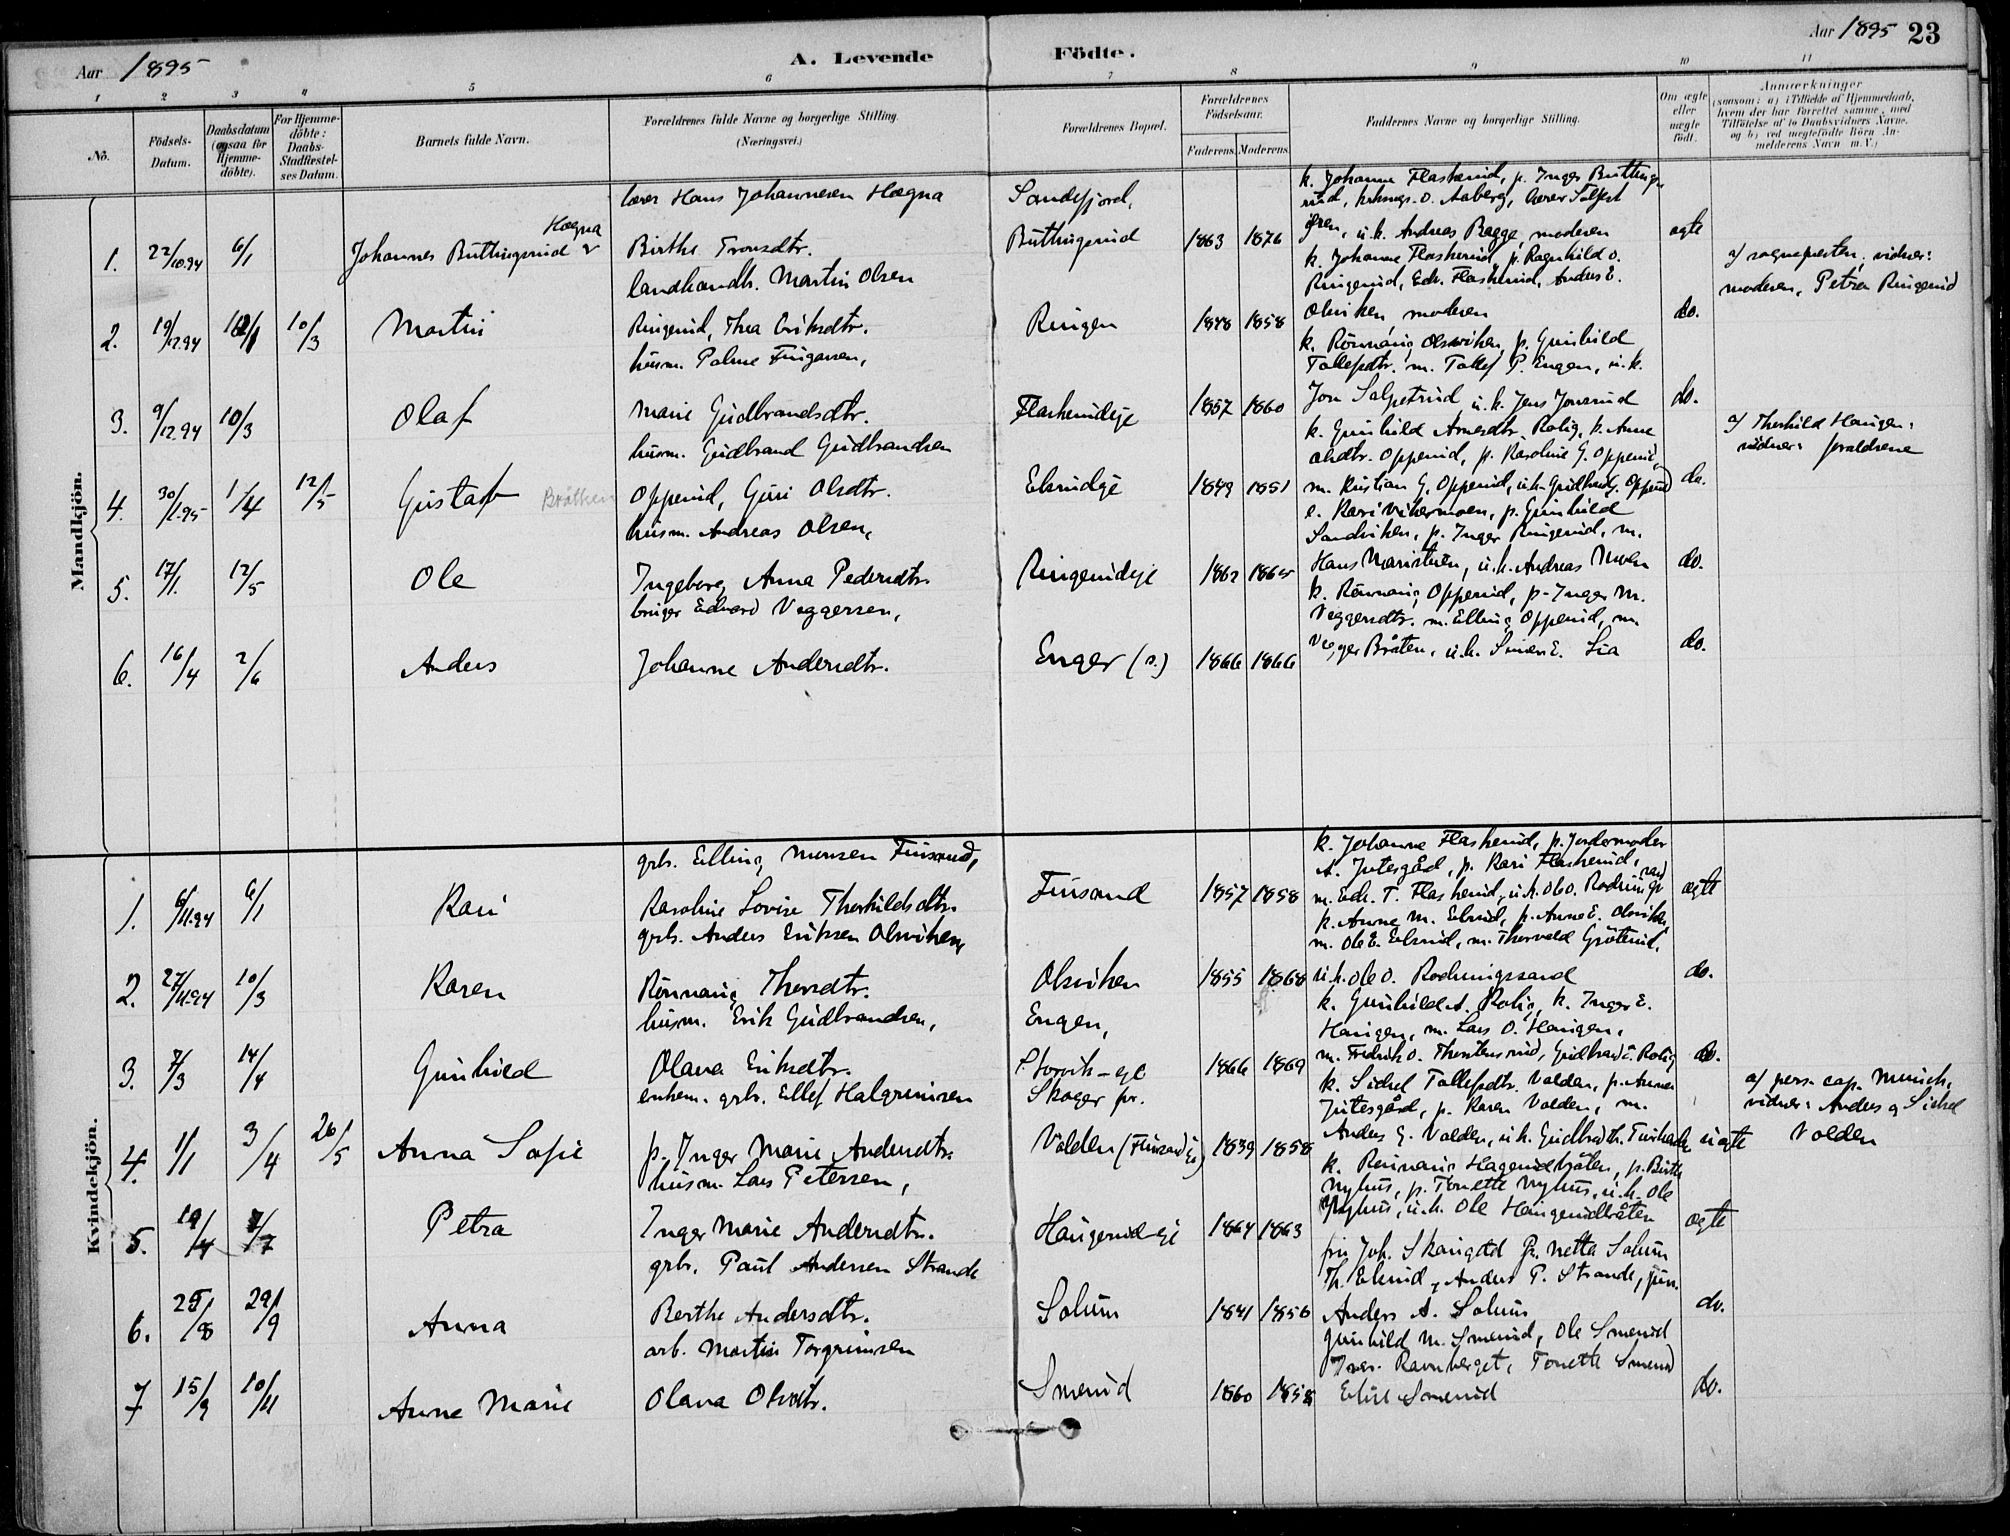 Aar 1895
A. Levende Födte.
Aar 1895 23
1 2 3 4 5 6 7 8 9 10 11
No.
Födsels-Datum.
Daabsdatum (ogsaa for Hjemme-döbte).
For Hjemme-döbte: Daabs-Stadfæstel-ses Datum.
Barnets fulde Navn.
Forældrenes fulde Navne og borgerlige Stilling.
(Næringsvei.)
Forældrenes Bopæl.
Forældrenes Födselsaar.
Faderens. Moderens.
Faddernes Navne og borgerlige Stilling.
Om ægte eller uægte födt.
Anmærkninger
(saasom: a) i Tilfælde af Hjemmedaab,
hvem der har forrettet samme, med
Tilföielse af to Daabsvidners Navne.
og b) ved uegtefödte Börn An-
melderens Navn m. V.)
Mandkjön.
1. 22/10.94 6/1 Johannes Buttingsrud Hægna
lærer Hans Johannesen Hægna
Birthe Tronsdtr.
Sandefjord,
Buttingsrud 1863 1876
k. Johanne Flaskerud, p. Inger Buttings
rud, kirkesgr. O. Aaberg, lærer Tollef
Øren, u.k. Andreas Bagge, moderen
ægte
2. 19/12.94 1/1 10/3 Martin
landhandl. Martin Olsen
Ringerud, Thea Eriksdtr.
Ringen 1848 1858
k. Johanne Flaskerud, p. Ragnhild O.
Ringerud, Edv. Flaskerud, Anders E.
Olsviken, moderen
do.
a) sognepresten, vidner:
moderen, Petra Ringerud
3. 9/12.94 10/3 Olaf
husm. Palme Fingarsen,
Marie Gudbrandsdtr.
Flaskerudeje 1857 1860
k. Rönnaug Olsviken, p. Gunhild
Tollefsdtr. m. Tollef P. Engen, u.k.
Jon Salpetrud u.k. Jens Jonsrud
do.
4. 30/1.95 1/4 12/5 Gustaf Bråthen
husm. Gudbrand Gudbrandsen
Opperud, Guri Olsdtr.
Elsrudeje 1849 1851
k. Gunhild Arnesdtr. Rolig, k. Anne
Olsdtr. Opperud, p. Karoline G. Opperud,
m. Kristian G. Opperud, u.k. Gudbr. G. Opperud
do.
a) Thorhild Haugen:
vidner: forældrene
5. 17/1. 12/5 Ole
husm. Andreas Olsen,
Ingeborg Anna Pedersdtr.
Ringerudeje 1862 1865
k. Kari Vikermoen, p. Gunhild
Sandviken, p. Inger Ringerud, m.
Hans Maristuen, u.k. Andreas Moen
do.
6. 16/4 2/6 Anders
bruger Edvard Veggersen,
Johanne Andersdtr.
Enger (s.) 1866 1866
k. Rönnaug Opperud, p. Inger M.
Veggersdtr. m. Elling Opperud, m.
Vegger Bråten, u.k. Simen E. Lia
do.
Kvindekjön.
1. 6/11.94 6/1 Kari
grb. Elling Monsen Finsand,
Karoline Lovise Thorkildsdtr.
Finsand 1857 1858
k. Johanne Flaskerud, p. Jordemoder
A. Jutesgård, p. Kari Flaskerud,
m. Edv. T. Flaskerud, u.k. Ole O. Rodningssand
ægte
2. 27/11.94 10/3 Karen
grb. Anders Eriksen Olsviken,
Rönnaug Thorsdtr.
Olsviken 1855 1868
k. Anne M. Elsrud, p. Anne E. Olsviken
m. Ole E. Elsrud, m. Thorvald Gröterud,
u.k. Ole O. Rodningssand
do.
3. 7/3 14/4 Gunhild
husm. Erik Gudbrandsen,
Olava Eriksdtr.
Engen,
Storvik-eje 1866 1869
k. Gunhild A. Rolig, k. Inger E.
Haugen, m. Lars O. Haugen,
m. Fredrik O. Thorstensrud, Gudbrand Rolig
do.
4. 1/1 3/4 26/5 Anna Sofie
enkem. grb. Ellef Halgrimsen
p. Inger Marie Andersdtr.
Skoger pr.
Volden (Finsandeje) 1839 1858
k. Sidsel Tollefsdtr. Volden, p. Anne
Jutesgård, p. Karen Volden, m.
Anders G. Volden, u.k. Gudbrand Th.
uægte
a) pers. cap. Munch,
vidner: Anders og Sidsel
Volden
5. 19/4 7/7 Petra
husm. Lars Petersen,
Inger Marie Andersdtr.
Haugerudeje 1864 1863
k. Rönnaug Hagerudbråten, p. Birthe
Nyhus, p. Tonette Nyhus, u.k. Ole
Nyhus, u.k. Ole Haugerudbråten
ægte
6. 25/8 29/9 Anna
grb. Paul Andersen Strande
Berthe Andersdtr.
Solum 1841 1850
fru Joh. Skaugdal, Netta Solum
Th. Elsrud, Anders P. Strande, jun.
Anders A. Solum
do.
7 15/9 10/11 Anne Marie
arb. Martin Torgrimsen
Olava Olsdtr.
Smerud 1860 1858
Gunhild M. Smerud, Ole Smerud
Iver Ravnberget, Tonette Smerud
Elise Smerud
do.